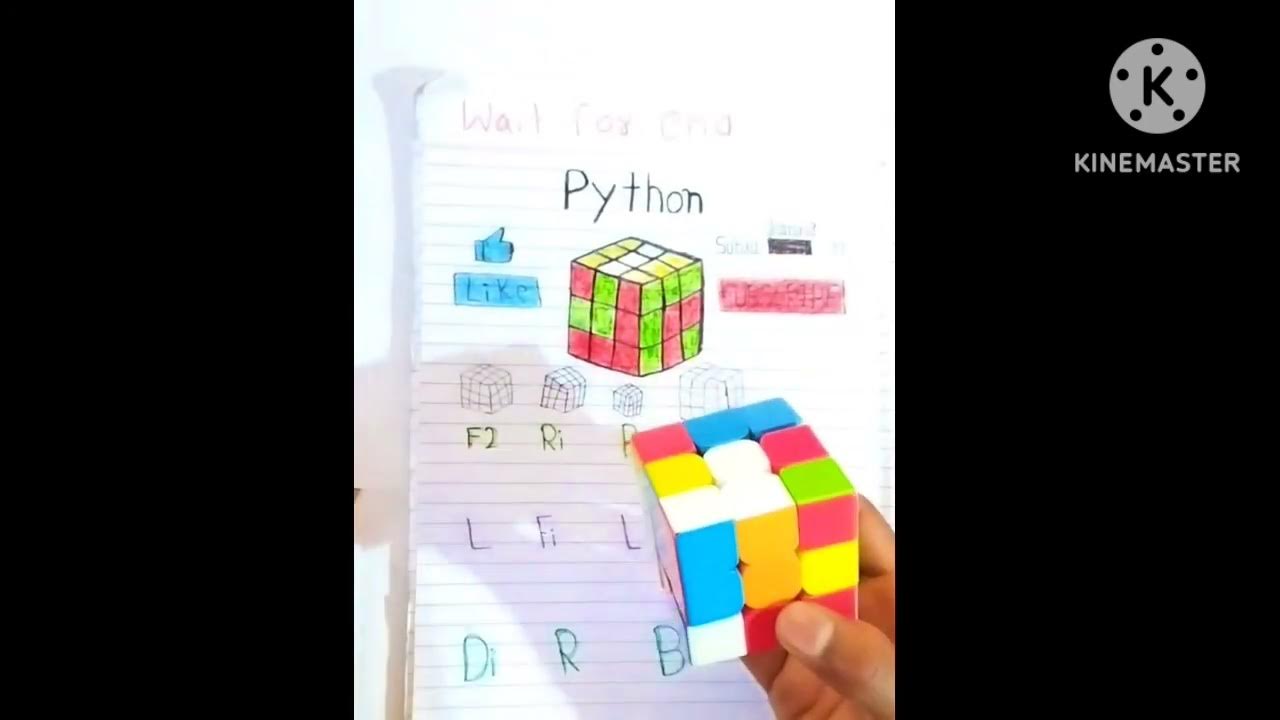 Wait for end
K
KINEMASTER
Python
Like
SUBSCRIBE
F2 Ri
L Fi L
Di R B